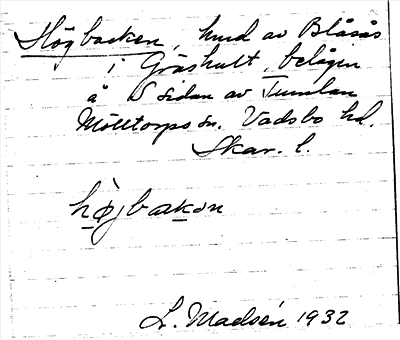 Högbacken, hmd av Blåsås
i Gräshult, belägen
å S sidan av Tunnlan
Mölltorps sn. Vadsbo hd.
Skar. l.
högbackon
L. Madsén 1932